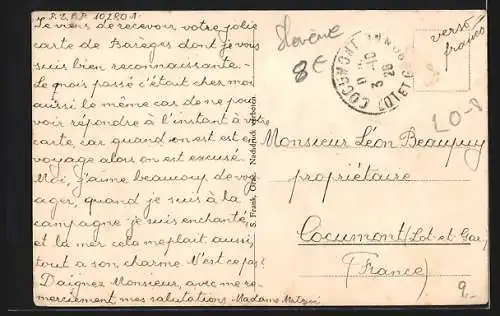 Je viens de recevoir votre jolie
carte de Barèges dont je vous
suis bien reconnaissante.-
Le quais passé c'était chez moi
aussi le même car donc pour
voir répondre à l'instant à votre
carte, car quand on est est en
voyage alors on est excusé.
Moi, j'aime beaucoup de voy-
ages, quand je suis à la
campagne je suis enchanté,
et la mer cela me plait aussi,
tout a son charme. N'est ce pas?
Daignez Monsieur, avec me re-
merciement mes salutations Madame
S. Frank, Graz. Nachdruck verboten.
Slovénie
8€
COCUMONT
LOT-ET-GARONNE
verso
franco
LO-8
Monsieur Léon Beaupuy
propriétaire
Cocumont (Lot-et-Gar.)
(France)
2,-